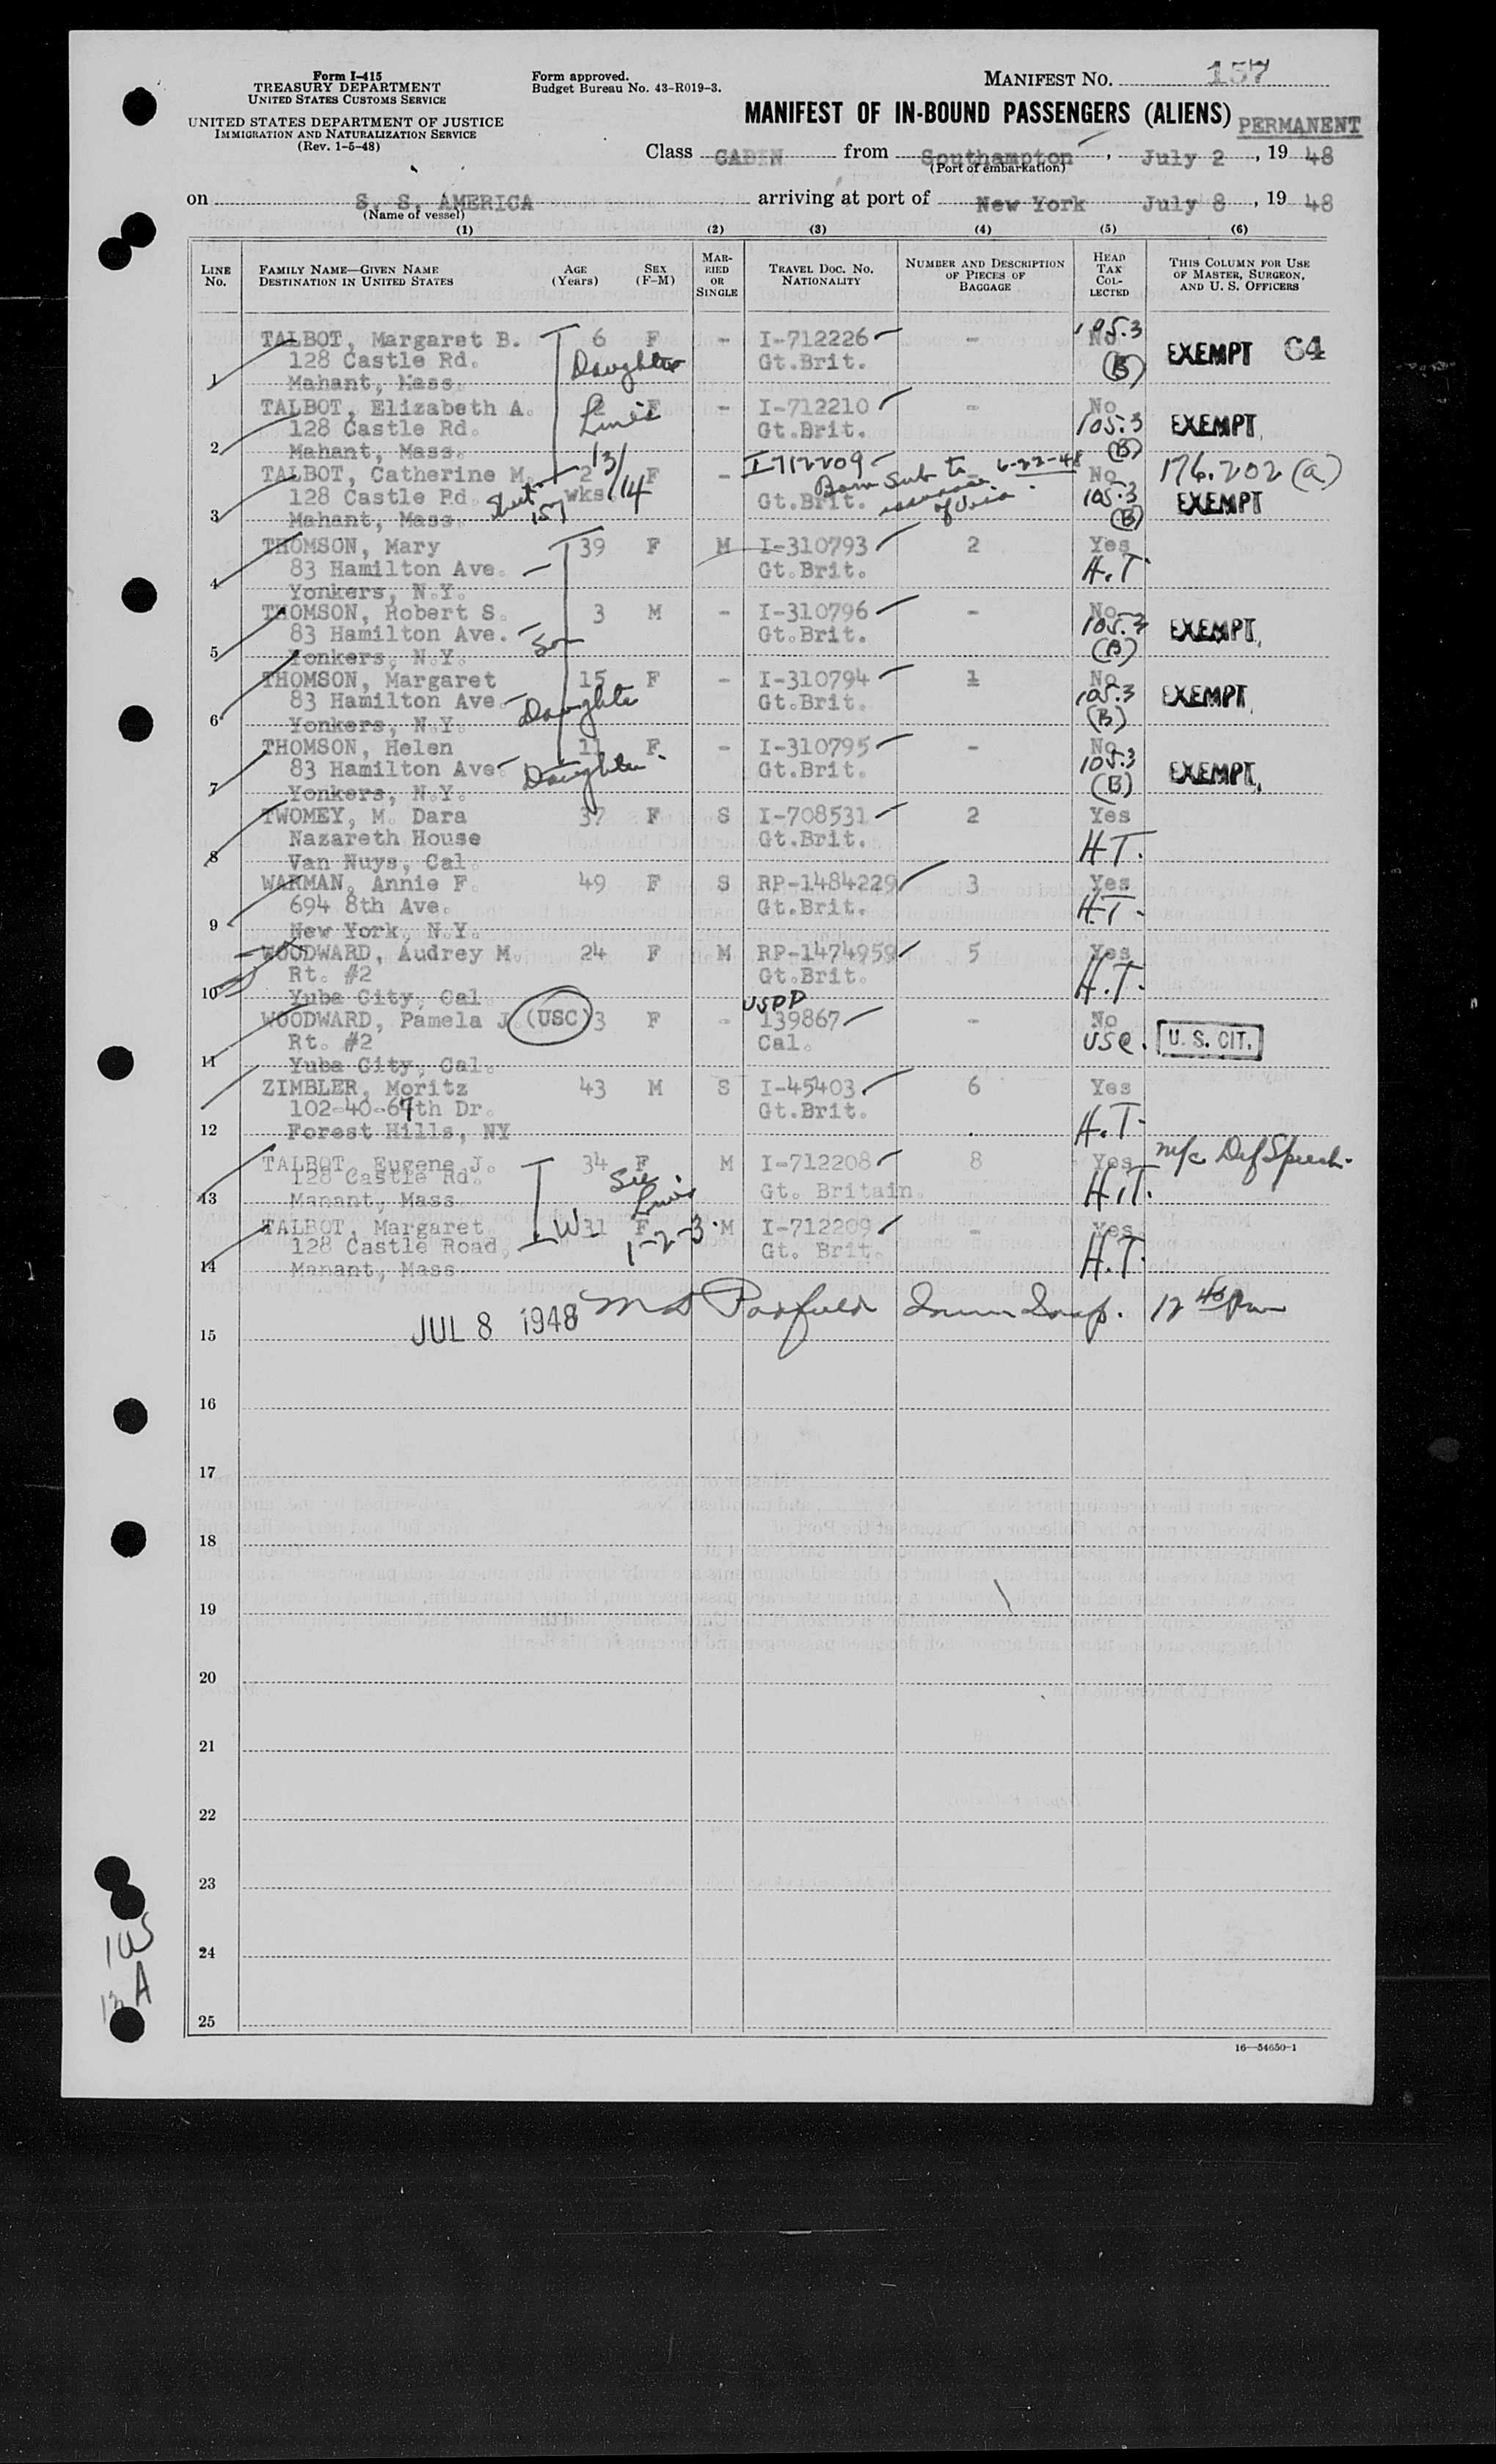 Form I-415
TREASURY DEPARTMENT
UNITED STATES CUSTOMS SERVICE
UNITED STATES DEPARTMENT OF JUSTICE
IMMIGRATION AND NATURALIZATION SERVICE
(Rev. 1-5-48)
Form approved.
Budget Bureau No. 43-R019-3.
MANIFEST NO. 157
MANIFEST OF IN-BOUND PASSENGERS (ALIENS) PERMANENT
Class CABIN from Southampton, July 2, 19 48
(Port of embarkation)
on S. S. AMERICA arriving at port of New York July 8, 19 48
(Name of vessel)
(1) (2) (3) (4) (5) (6)
LINE No. FAMILY NAME—GIVEN NAME DESTINATION IN UNITED STATES AGE (Years) SEX (F-M) MARRIED OR SINGLE TRAVEL DOC. NO. NATIONALITY NUMBER AND DESCRIPTION OF PIECES OF BAGGAGE HEAD TAX COLLECTED THIS COLUMN FOR USE OF MASTER, SURGEON, AND U. S. OFFICERS
TALBOT, Margaret B. 6 F - I-712226 - No 105.3
128 Castle Rd. Daughter Gt.Brit. (B) EXEMPT 64
1 Mahant, Mass.
TALBOT, Elizabeth A. 2 F - I-712210 - No
128 Castle Rd. Lines Gt.Brit. 105.3 EXEMPT
2 Mahant, Mass. (B)
TALBOT, Catherine M. 2 13/14 F - I712209 - 6-22-48 No 176.202 (a)
128 Castle Rd. Sheet wks Gt.Brit. Born Sub to issuance of Visa. 105.3 EXEMPT
3 Mahant, Mass. 157 (B)
THOMSON, Mary 39 F M I-310793 2 Yes
83 Hamilton Ave. Gt.Brit. H.T.
4 Yonkers, N.Y.
THOMSON, Robert S. 3 M - I-310796 - No
83 Hamilton Ave. Son Gt.Brit. 105.3 EXEMPT
5 Yonkers, N.Y. (B)
THOMSON, Margaret 15 F - I-310794 1 No
83 Hamilton Ave. Daughter Gt.Brit. 105.3 EXEMPT
6 Yonkers, N.Y. (B)
THOMSON, Helen 11 F - I-310795 - No
83 Hamilton Ave. Daughter Gt.Brit. 105.3 EXEMPT
7 Yonkers, N.Y. (B)
TWOMEY, M. Dara 37 F S I-708531 2 Yes
Nazareth House Gt.Brit. H.T.
8 Van Nuys, Cal.
WARMAN, Annie F. 49 F S RP-1484229 3 Yes
694 8th Ave. Gt.Brit. H.T.
9 New York, N.Y.
WOODWARD, Audrey M. 24 F M RP-1474959 5 Yes
Rt. #2 Gt.Brit. H.T.
10 Yuba City, Cal.
WOODWARD, Pamela J. (USC) 3 F - USPP 139867 - No
Rt. #2 Cal. USC. U. S. CIT.
11 Yuba City, Cal.
ZIMBLER, Moritz 43 M S I-45403 6 Yes
102-40-67th Dr. Gt.Brit. H.T.
12 Forest Hills, NY
TALBOT, Eugene J. 34 F M I-712208 8 Yes m/c Def Speech.
128 Castle Rd. See Lines Gt. Britain. H.T.
13 Manant, Mass
TALBOT, Margaret W 31 F 1-2-3. M I-712209 - Yes
128 Castle Road, Gt. Brit. H.T.
14 Manant, Mass
15 JUL 8 1948 Immn Insp. 12 40 Pm
16
17
18
19
20
21
22
23
24
25
16—54650-1